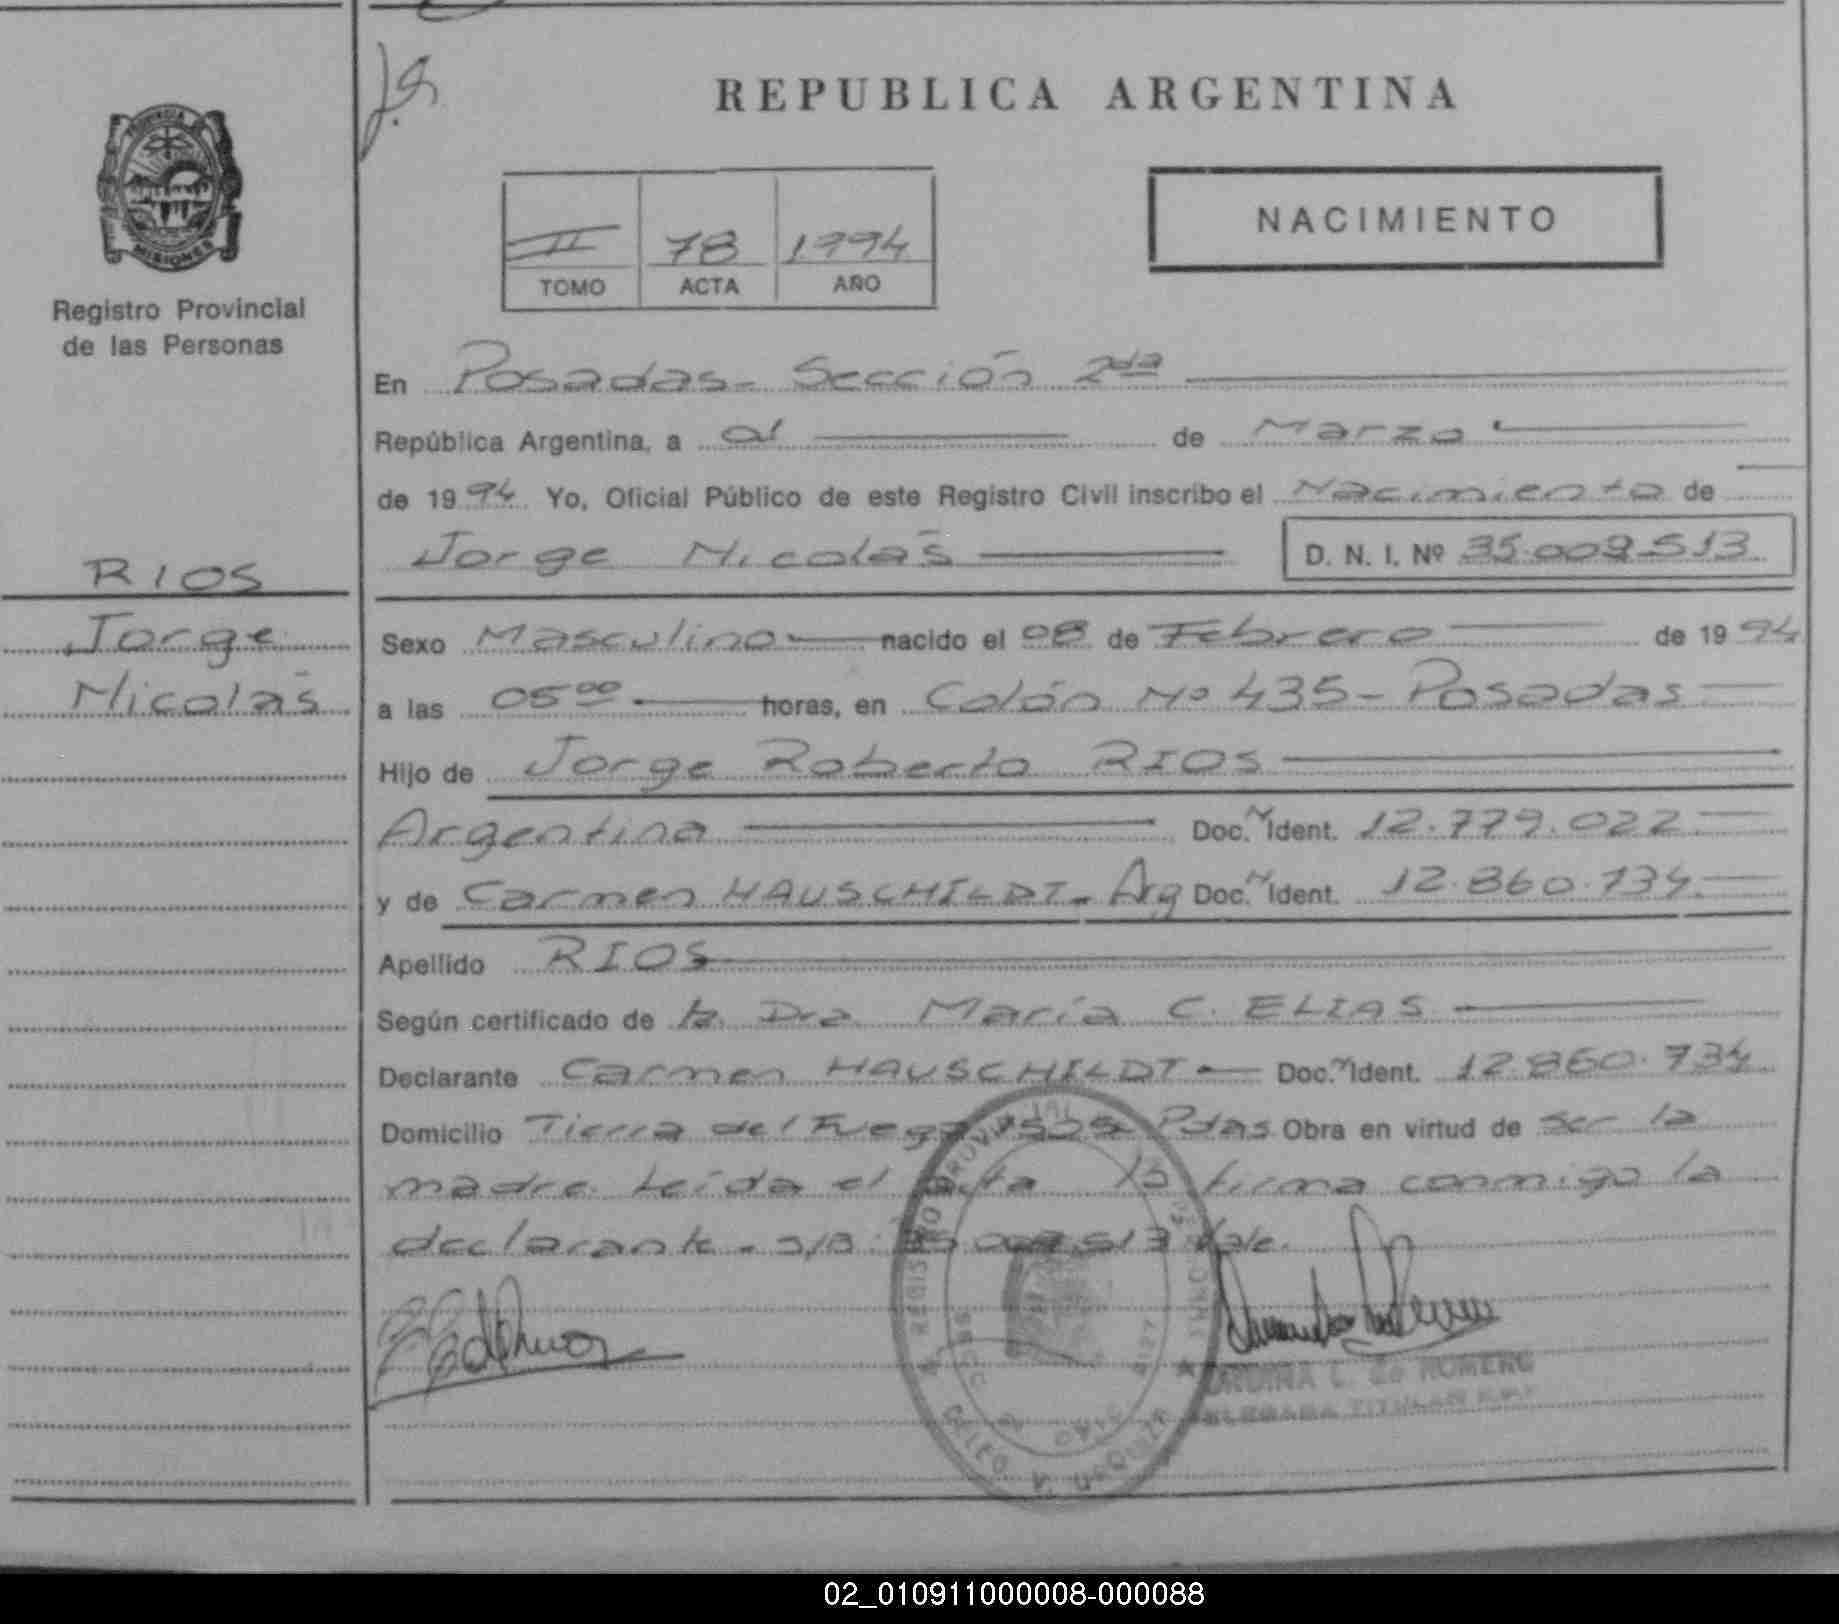 REPUBLICA ARGENTINA
PROVINCIA DE
MISIONES
Registro Provincial
de las Personas
II 78 1994
TOMO ACTA AÑO
NACIMIENTO
En Posadas - Sección 2da
República Argentina, a 01 de Marzo
de 1994 Yo, Oficial Público de este Registro Civil inscribo el Nacimiento de
Jorge Nicolás D. N. I. Nº 35.009.513
RIOS
Jorge
Nicolás
Sexo Masculino nacido el 08 de Febrero de 1994
a las 05 00 horas, en Colón Nº 435 - Posadas
Hijo de Jorge Roberto RIOS
Argentina Doc. N Ident. 12.779.022
y de Carmen HAUSCHILDT - Arg Doc. N Ident. 12.860.734
Apellido RIOS
Según certificado de la Dra María C. ELIAS
Declarante Carmen HAUSCHILDT - Doc. N Ident. 12.860.734
Domicilio Tierra del Fuego Pdas Obra en virtud de ser la
madre Leída el acta la firma conmigo la
declarante - S/B: 35.009.513 Vale.
L. de ROMERO
DELEGADA TITULAR
02_010911000008-000088